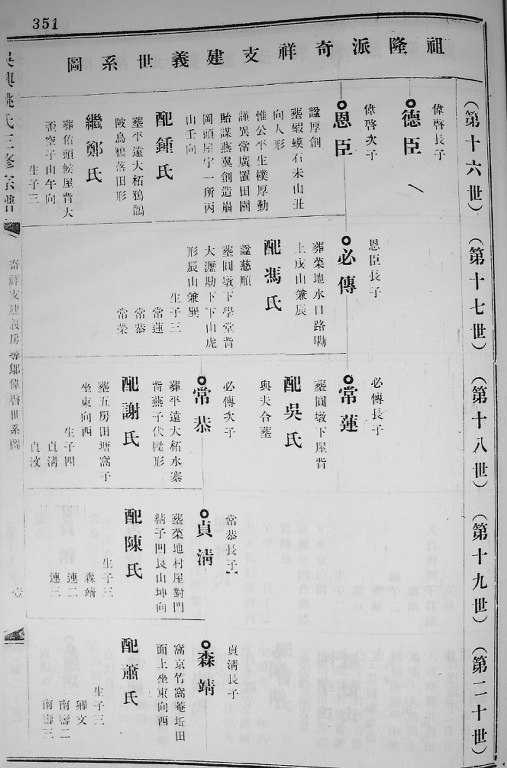 351
祖隆派奇祥支建義世系圖
(第十六世)
(第十七世)
(第十八世)
(第十九世)
(第二十世)
偉啓長子
德臣
偉啓次子
恩臣
諡厚創
葬蝦蟆石未山丑
向人形
惟公平生樸厚勤
謹異常廣置田園
貽謀燕翼創造崩
岡頭屋宇一所丙
山壬向
配鍾氏
葬平遠大柘鴉鵲
陂鳥鴉落田形
繼鄭氏
葬佑頭候屋背大
窩空子山午向
生子三
恩臣長子
必傳
葬菜地水口路
上戍山兼辰
配馮氏
諡慈順
葬圓墩下學堂背
大瀝坜下下山虎
形辰山兼巽
生子三
常蓮
常恭
常榮
必傳長子
常蓮
葬圓墩下屋背
配吳氏
與夫合葬
必傳次子
常恭
葬平遠大柘水寨
背燕子伏樑形
配謝氏
葬五房田塘窩子
坐東向西
生子四
貞清
貞汶
常恭長子
貞清
葬菜地村屋對門
精子凹艮山坤向
配陳氏
生子三
森靖
連二
連三
貞清長子
森靖
窩京竹窩菴坵田
面上坐東向西
配蕭氏
生子三
輝文
南壽二
南壽三
吳興姚氏三修宗譜
奇祥支建義房
偉啓世系圖
壹